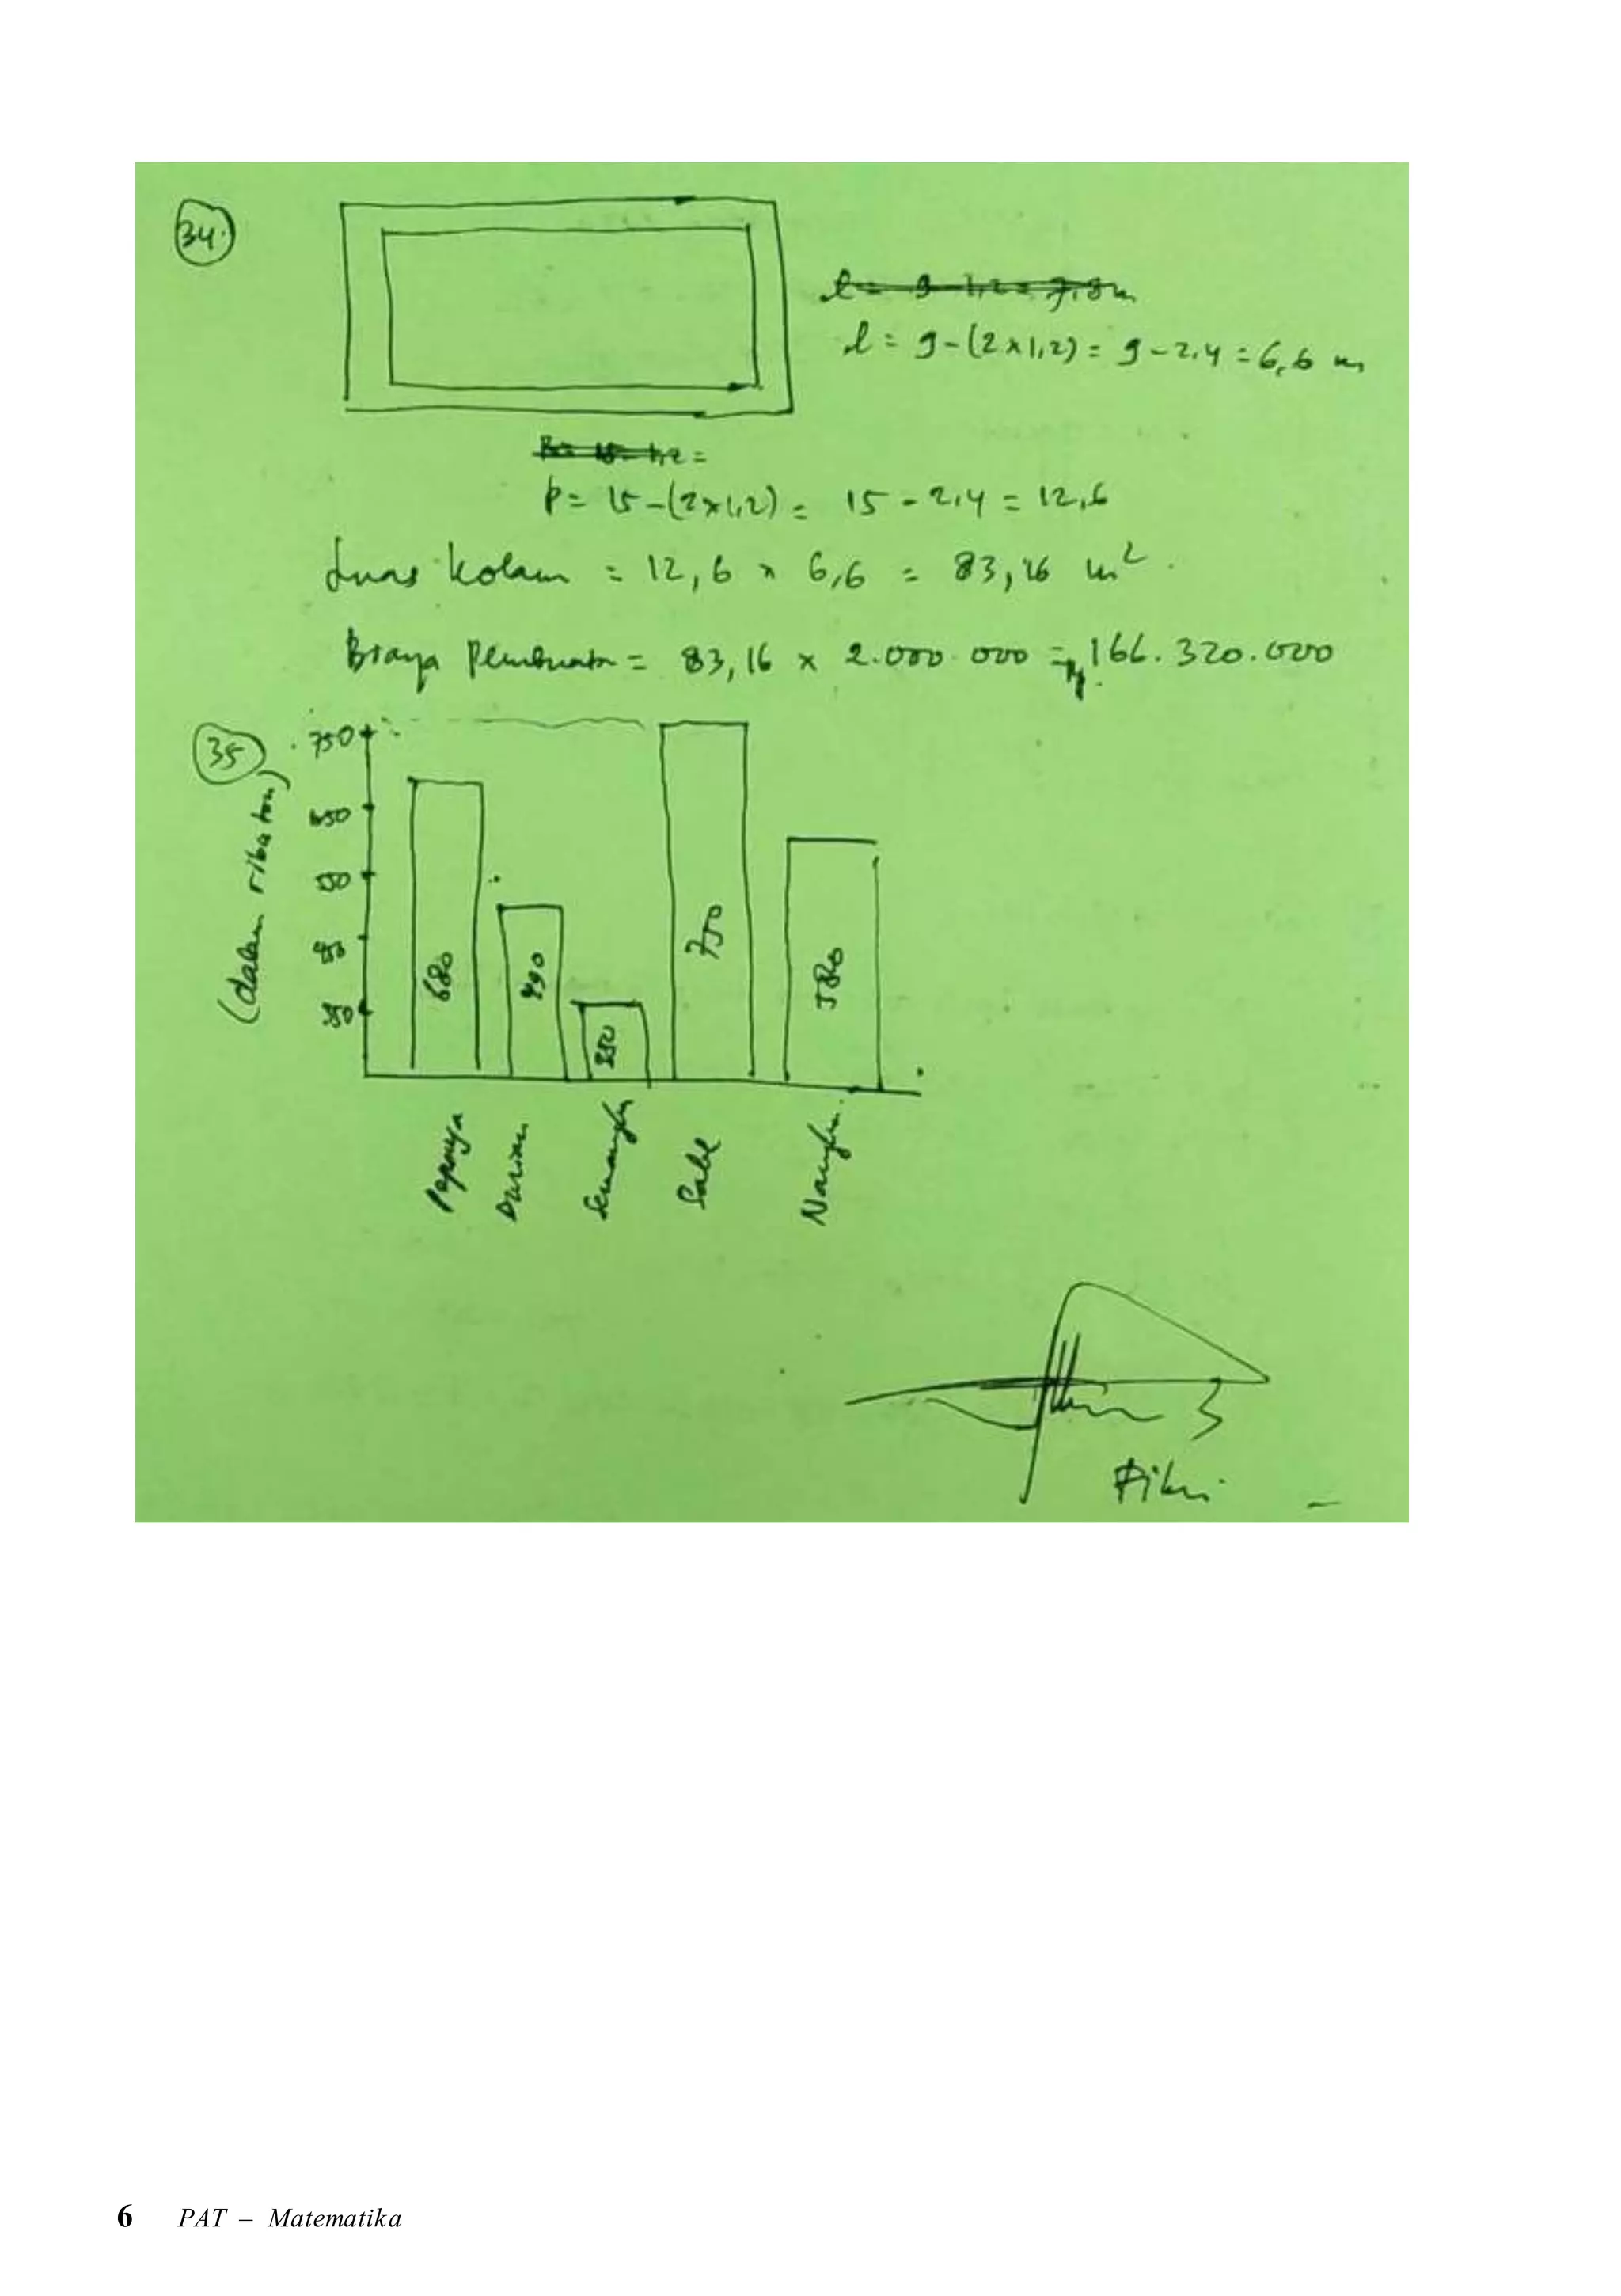 34.
l = 9 - 1,2 = 7,8 m
l = 9 - (2 x 1,2) = 9 - 2,4 = 6,6 m
P = 15 - 1,2 =
P = 15 - (2 x 1,2) = 15 - 2,4 = 12,6
Luas kolam = 12,6 x 6,6 = 83,16 m²
Biaya Pembuatan = 83,16 x 2.000.000 = Rp. 166.320.000
35
(dalam ribu ton)
750
650
550
450
350
680
490
750
580
Pepaya
Durian
Semangka
Salak
Nangka
Fikri
6 PAT – Matematika